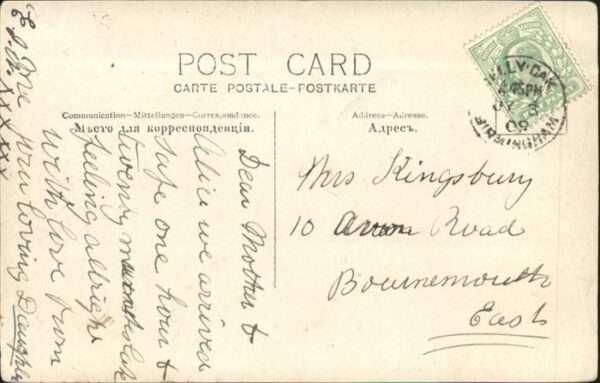 POST CARD
CARTE POSTALE-POSTKARTE
Communication-Mitteilungen-Correspondence.
Мѣсто для корреспонденціи.
Address-Adresse.
Адресъ.
SELLY-OAK
4.45PM
09
BIRMINGHAM
Mrs Kingsbury
10 Road
Bournemouth
East
Dear Mother &
Alice we arrived
safe one hour &
twenty late
feeling allright
with love from
your loving Daughter
XXXXX